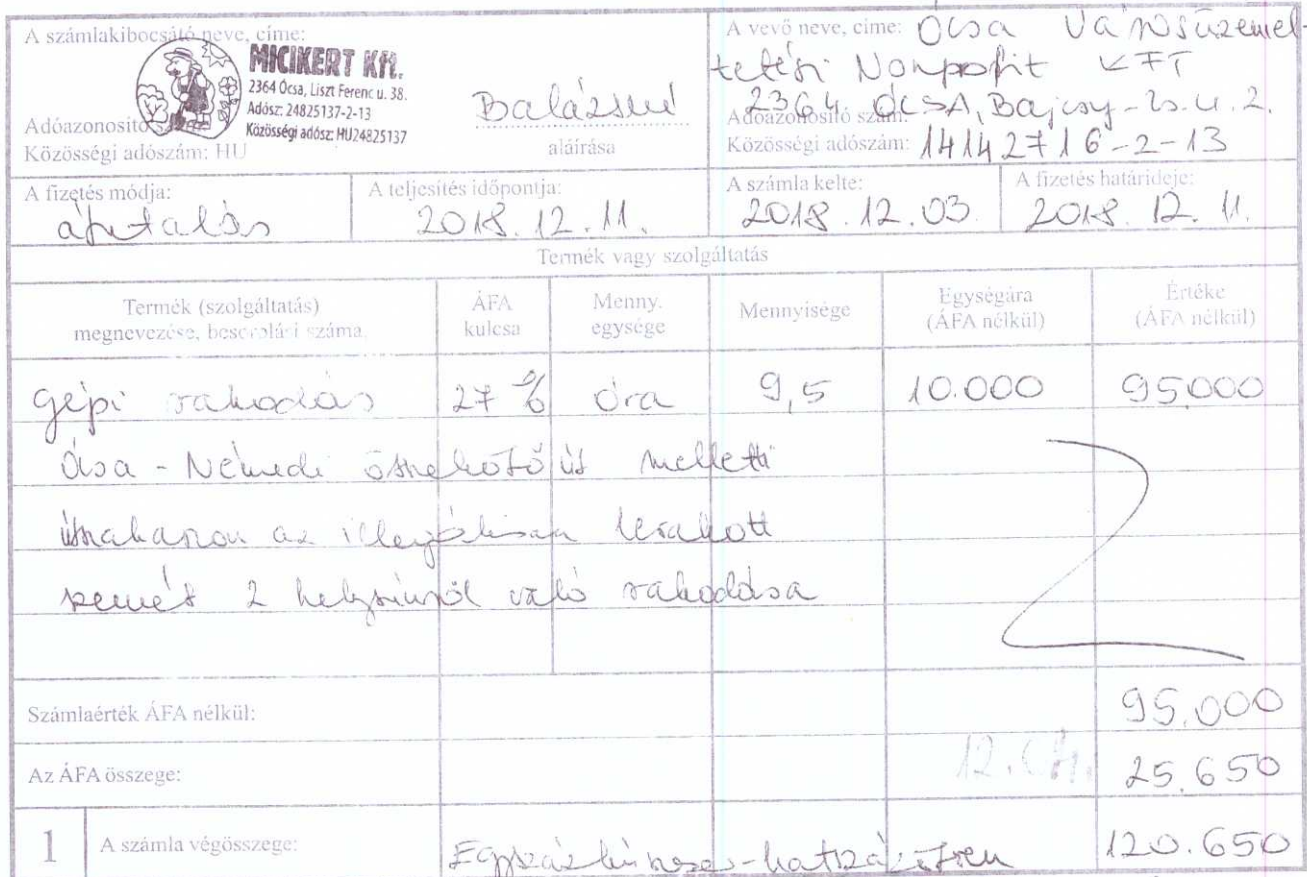 A számlakibocsátó neve, címe:
MICIKERT Kft.
2364 Ócsa, Liszt Ferenc u. 38.
Adósz: 24825137-2-13
Közösségi adósz: HU24825137
Adóazonosító
Közösségi adószám: HU
Balázsné
aláírása
A vevő neve, címe: Ócsa Városüzemel-
tetési Nonprofit KFT
2364. ÓCSA, Bajcsy-Zs. u. 2.
Adóazonosító szám:
Közösségi adószám: 14142716-2-13
A fizetés módja:
átutalás
A teljesítés időpontja:
2018.12.11.
A számla kelte:
2018.12.03.
A fizetés határideje:
2018.12.11.
Termék vagy szolgáltatás
Termék (szolgáltatás)
megnevezése, besorolási száma
ÁFA
kulcsa
Menny.
egysége
Mennyisége
Egységára
(ÁFA nélkül)
Értéke
(ÁFA nélkül)
gépi rakodás 27% óra 9,5 10.000 95000
Ócsa - Némedi összekötő út melletti
útszakaszon az illegálisan lerakott
szemét 2 helyszínről való rakodása
Számlaérték ÁFA nélkül: 95.000
Az ÁFA összege: 25.650
1 A számla végösszege: 120.650